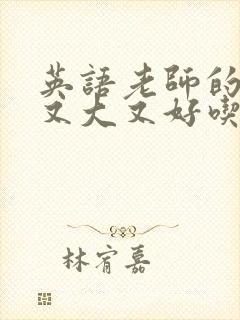 英語老師的
又大又好喫
林宥嘉